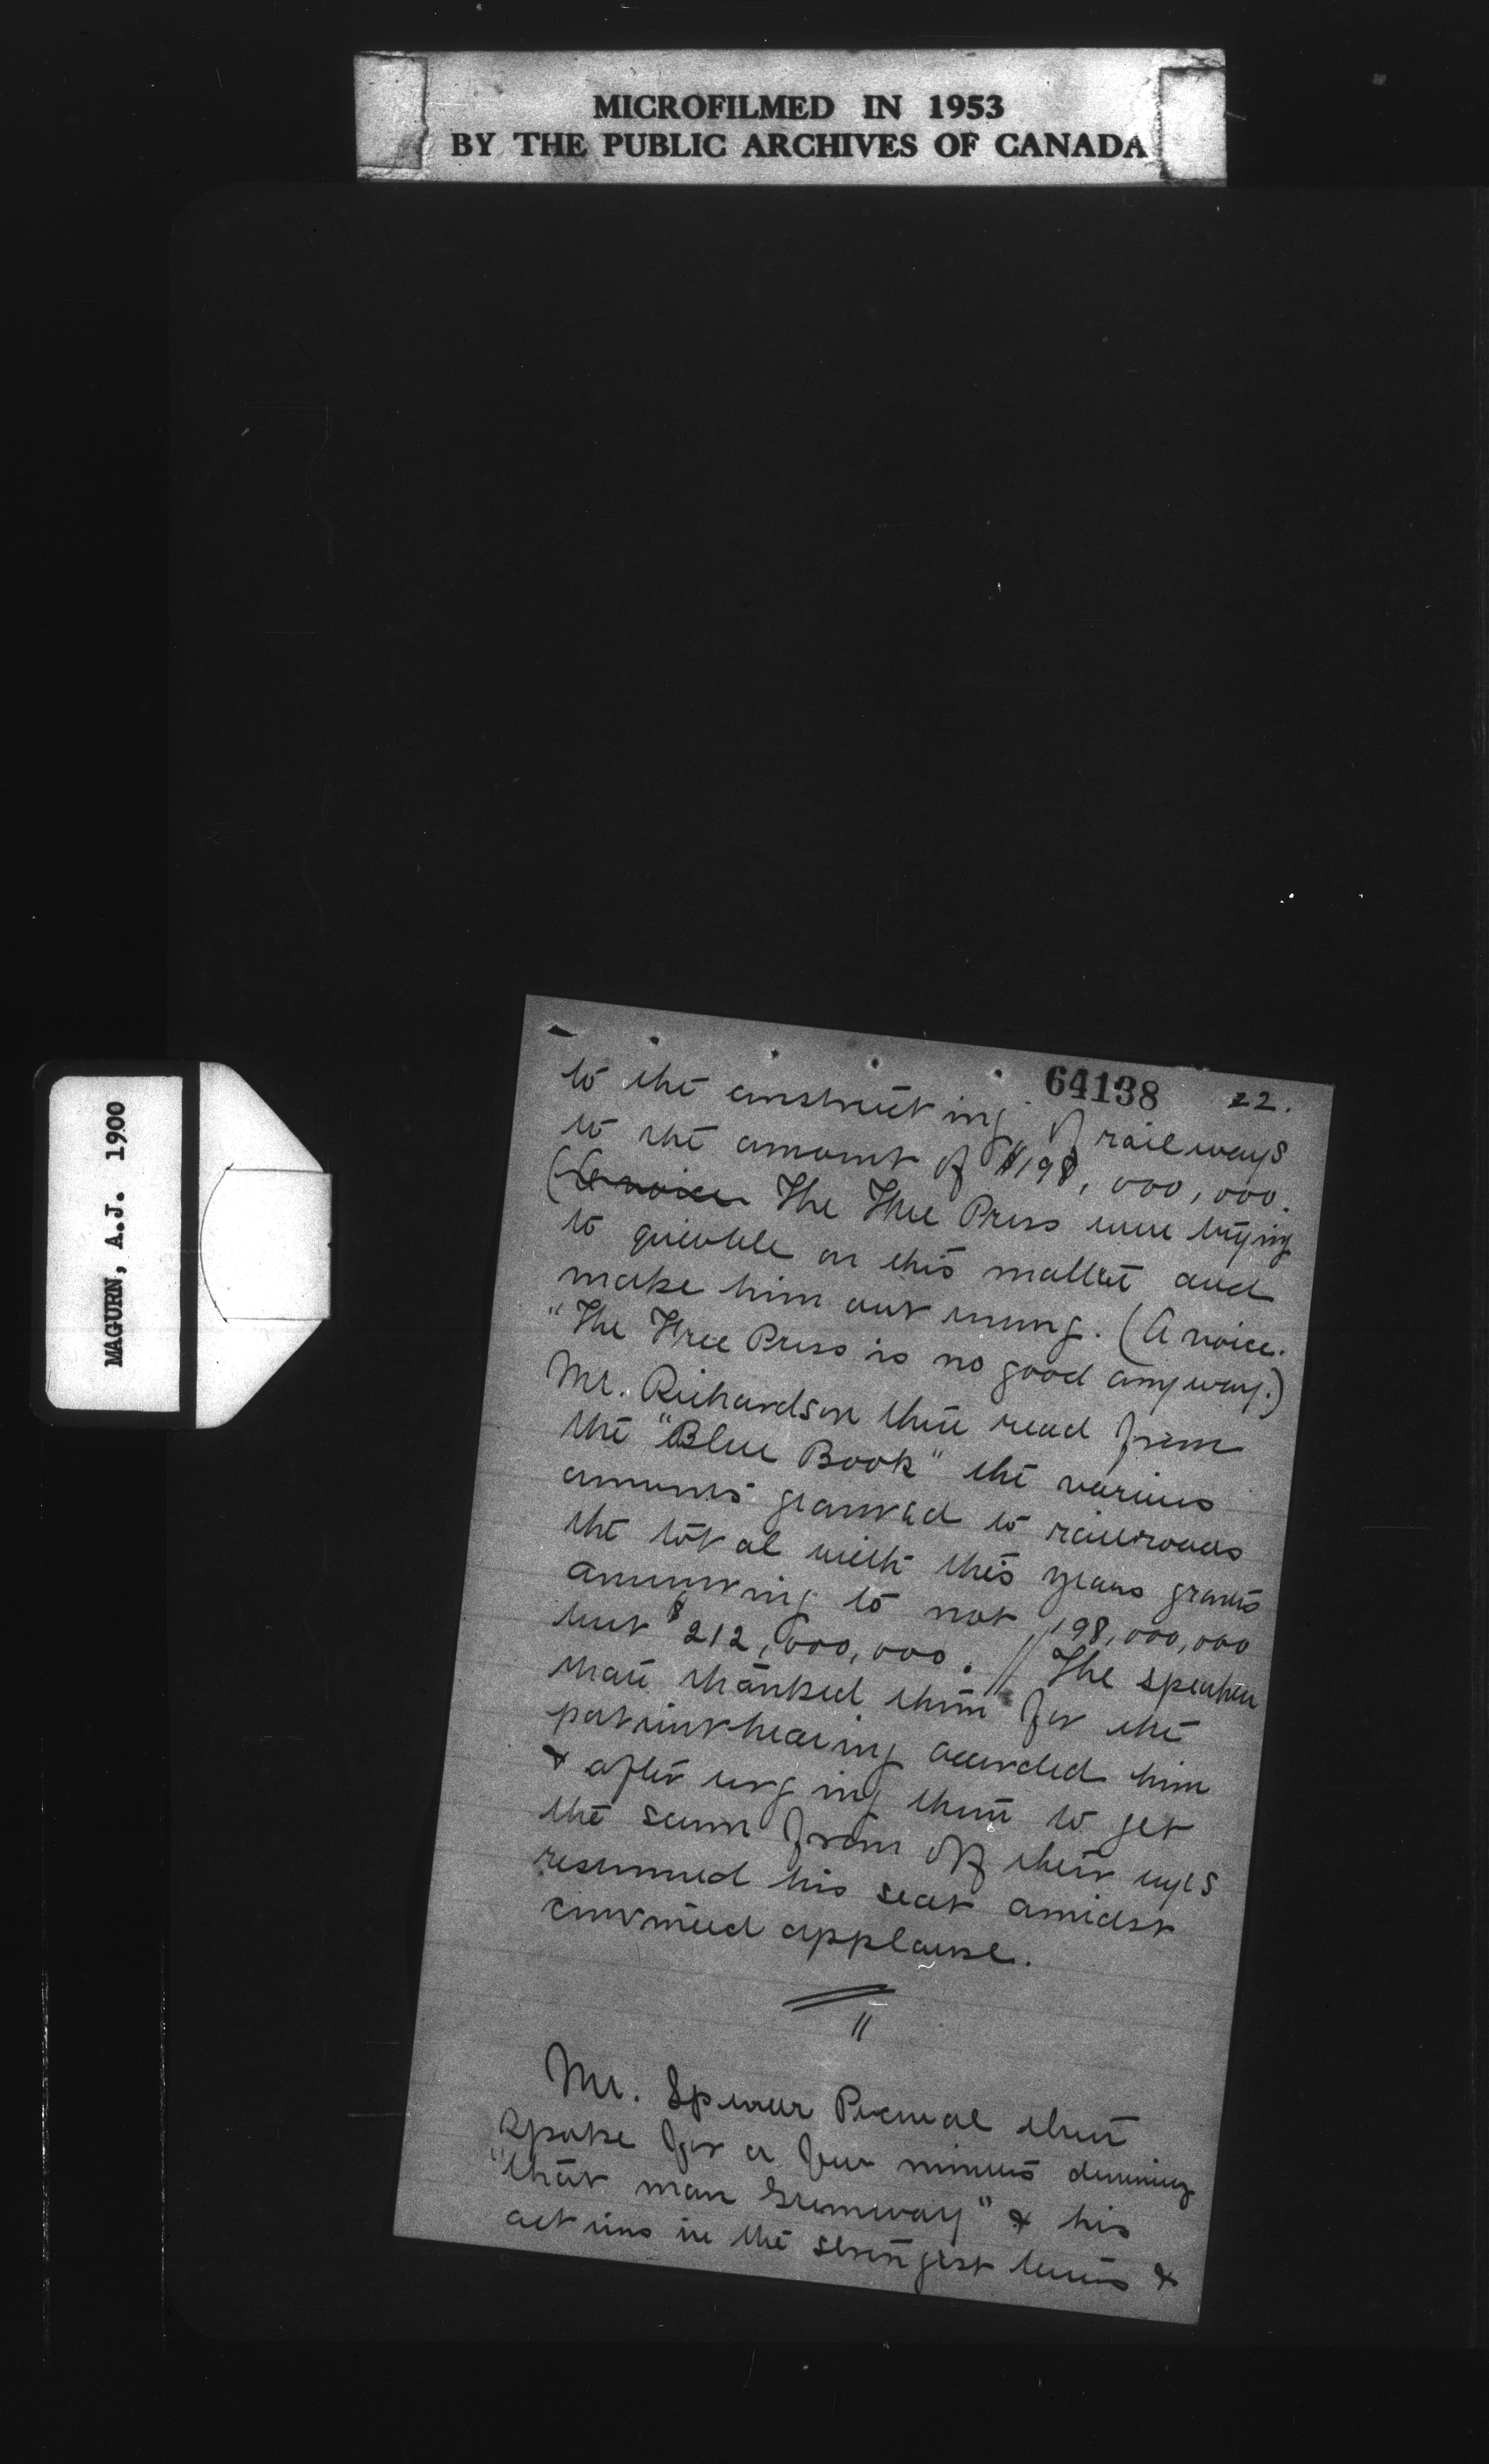 MICROFILMED IN 1953
BY THE PUBLIC ARCHIVES OF CANADA
MAGURN, A.J. 1900
64138 22.
to the constructing of railways
to the amount of $198,000,000.
(A voice The Free Press were trying
to quibble on this matter and
make him out wrong. (A voice.
"The Free Press is no good anyway.)
Mr. Richardson then read from
the "Blue Book" the various
amounts granted to railroads
the total with this years grants
amounting to not 198,000,000
but $212,000,000. // The speaker
then thanked them for the
patient hearing accorded him
& after urging them to get
the scum from off their eyes
resumed his seat amidst
continued applause.
Mr. then
spoke for a few minutes
"that man Greenway" & his
actions in the strongest terms &